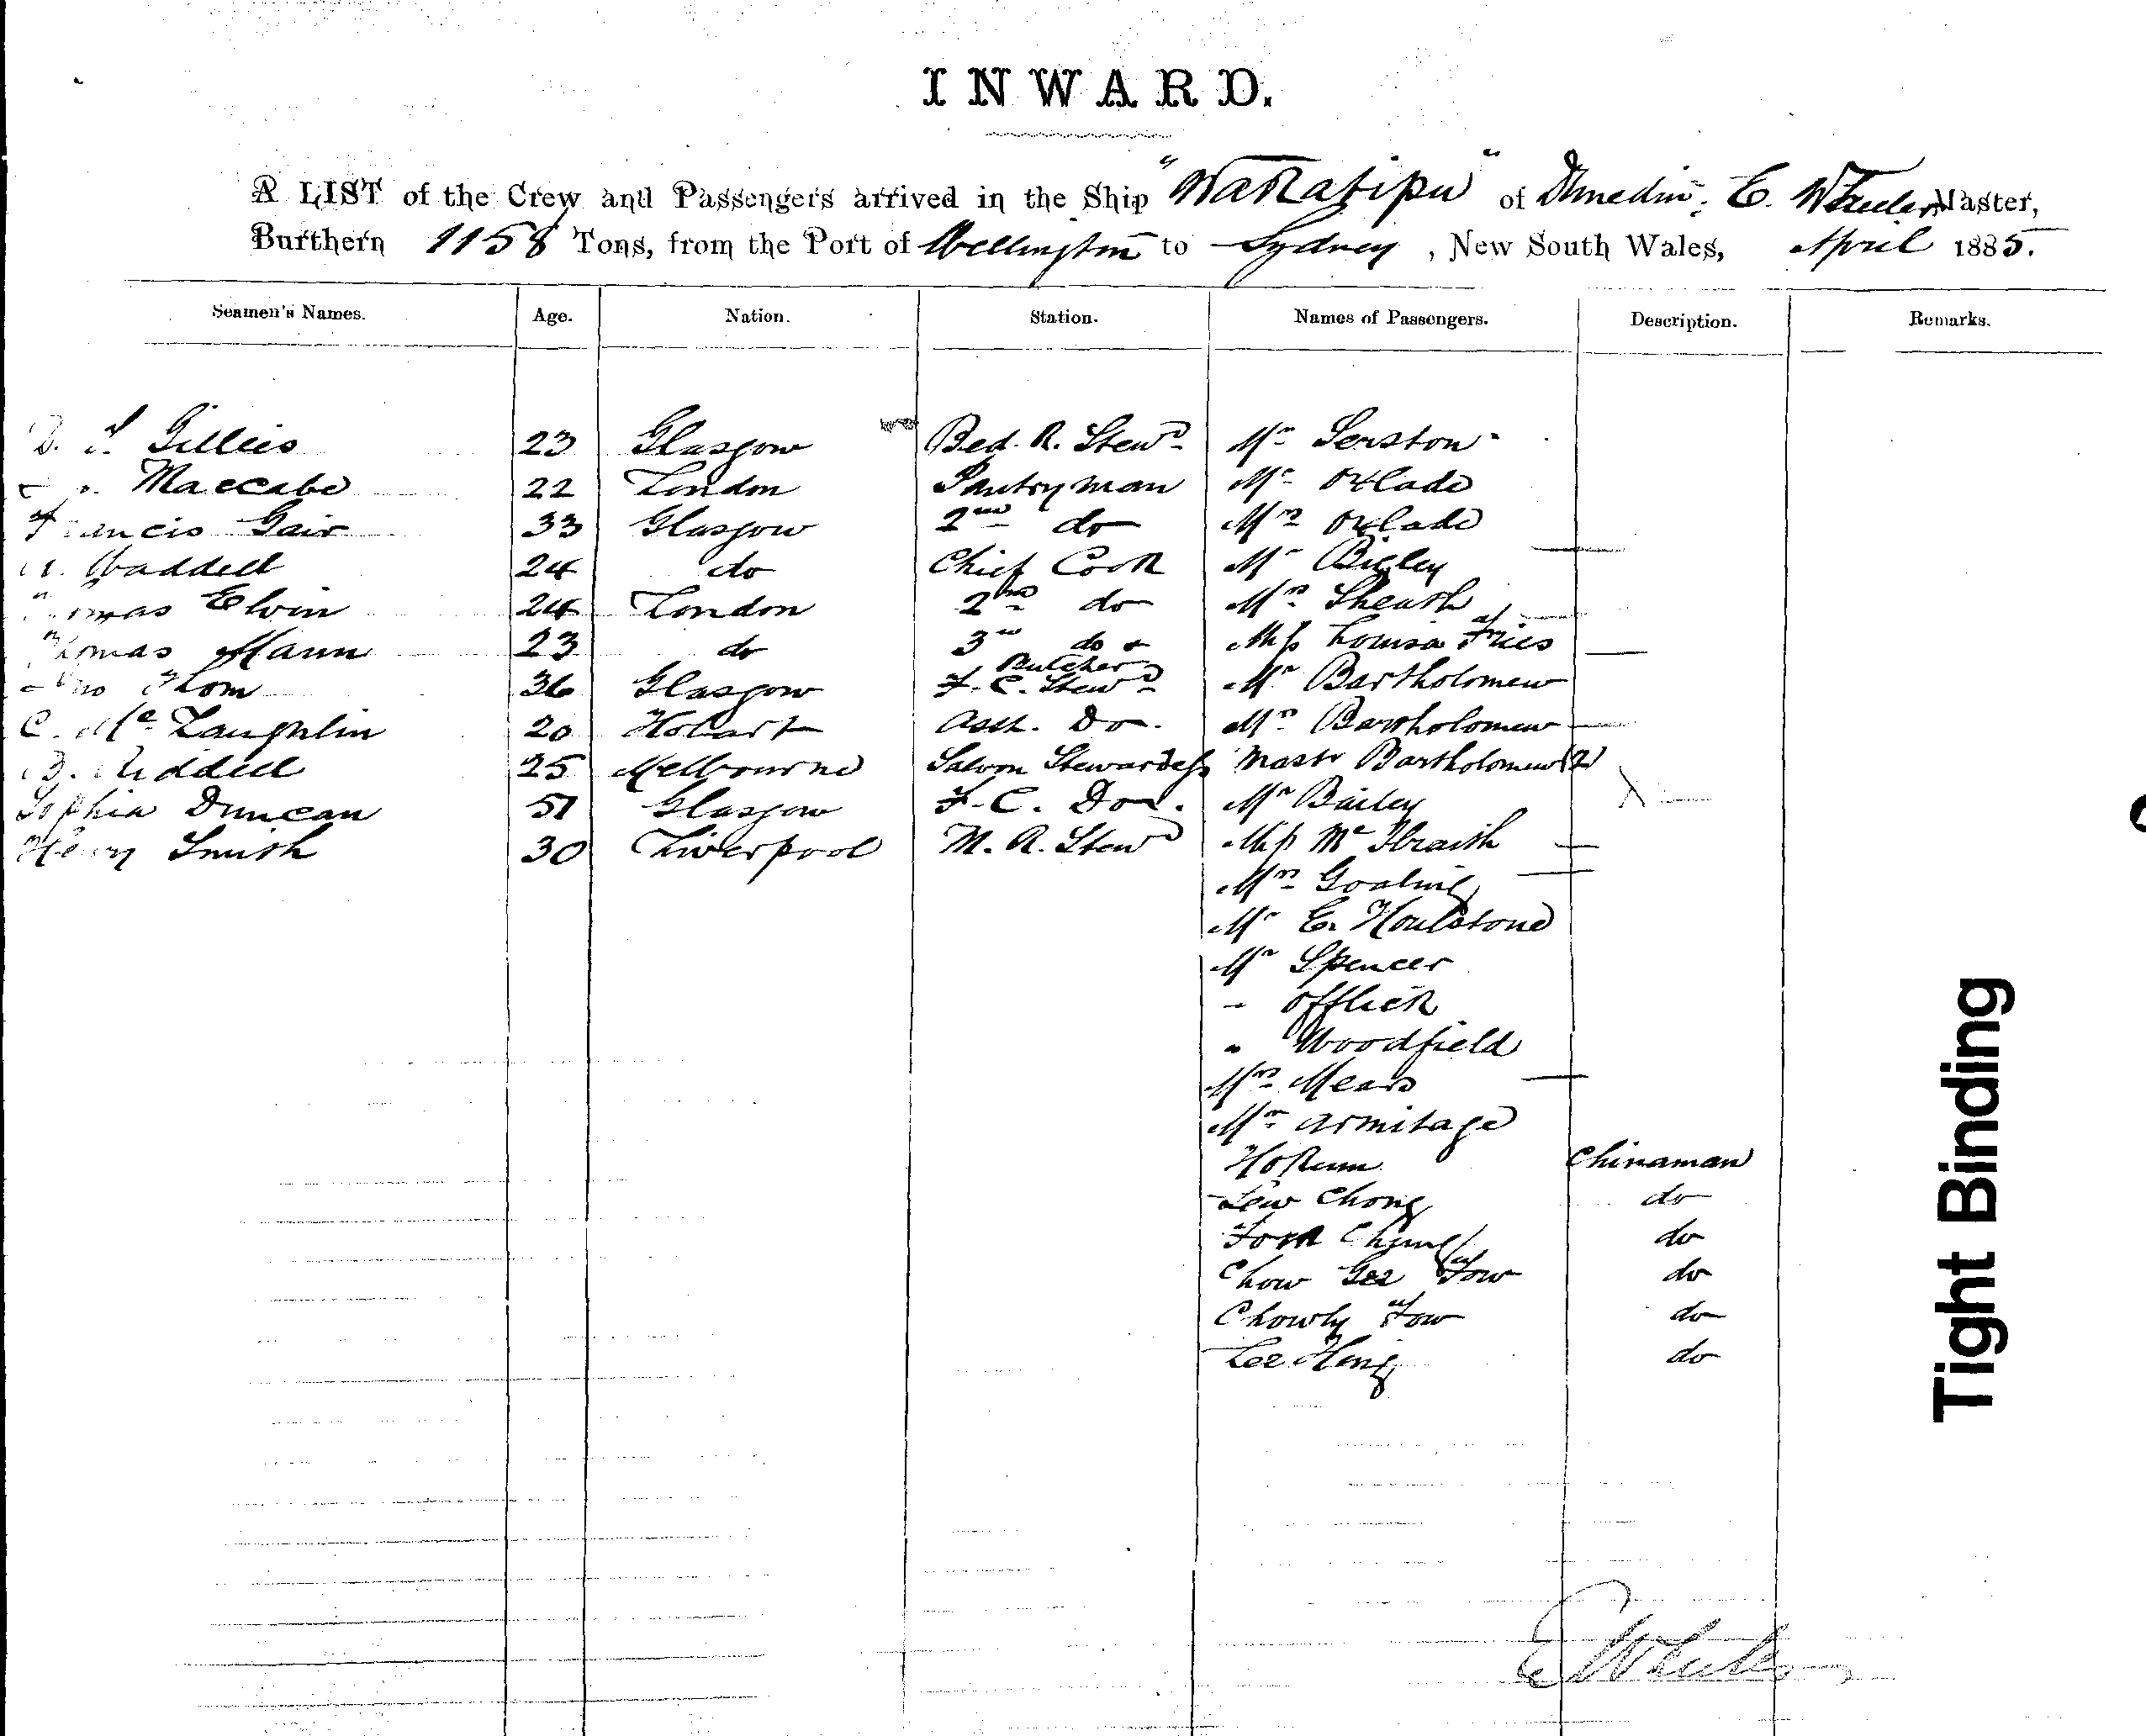 INWARD.
A LIST of the Crew and Passengers arrived in the Ship "Wakatipu" of Dunedin, E. Wheeler Master,
Burthern 1158 Tons, from the Port of Wellington to Sydney, New South Wales, April 1885.
Seamen's Names. Age. Nation. Station. Names of Passengers. Description. Remarks.
Gillies 23 Glasgow Bed. R. Stewd Mr Serston
Maccabe 22 London Pantryman Mr Oxlade
Francis Gair 33 Glasgow 2nd do Mrs Oxlade
Waddell 24 do Chief Cook Mr Bigley
Thomas Elvin 24 London 2nd do Mrs Sheath
Thomas Mann 23 do 3rd do & Butcher Miss Louisa Fries
Thom 36 Glasgow F. C. Stewd Mr Bartholomew
C. McLaughlin 20 Hobart Asst. Do. Mrs Bartholomew
B. Riddell 25 Melbourne Saloon Stewardess Mastr Bartholomew (2)
Sophia Duncan 51 Glasgow F. C. Do. Mr Bailey
Henry Smith 30 Liverpool M. R. Stewd Miss McIlraith
Mrs Gosling
Mr E. Houlstone
Mr Spencer
" Offlick
" Woodfield
Mrs Mears
Mr Armitage
Ho Kum Chinaman
Lew Chong do
Fook Chung do
Chow Gee Fow do
Chowly Fow do
Lee Hing do
E Wheeler
Tight Binding